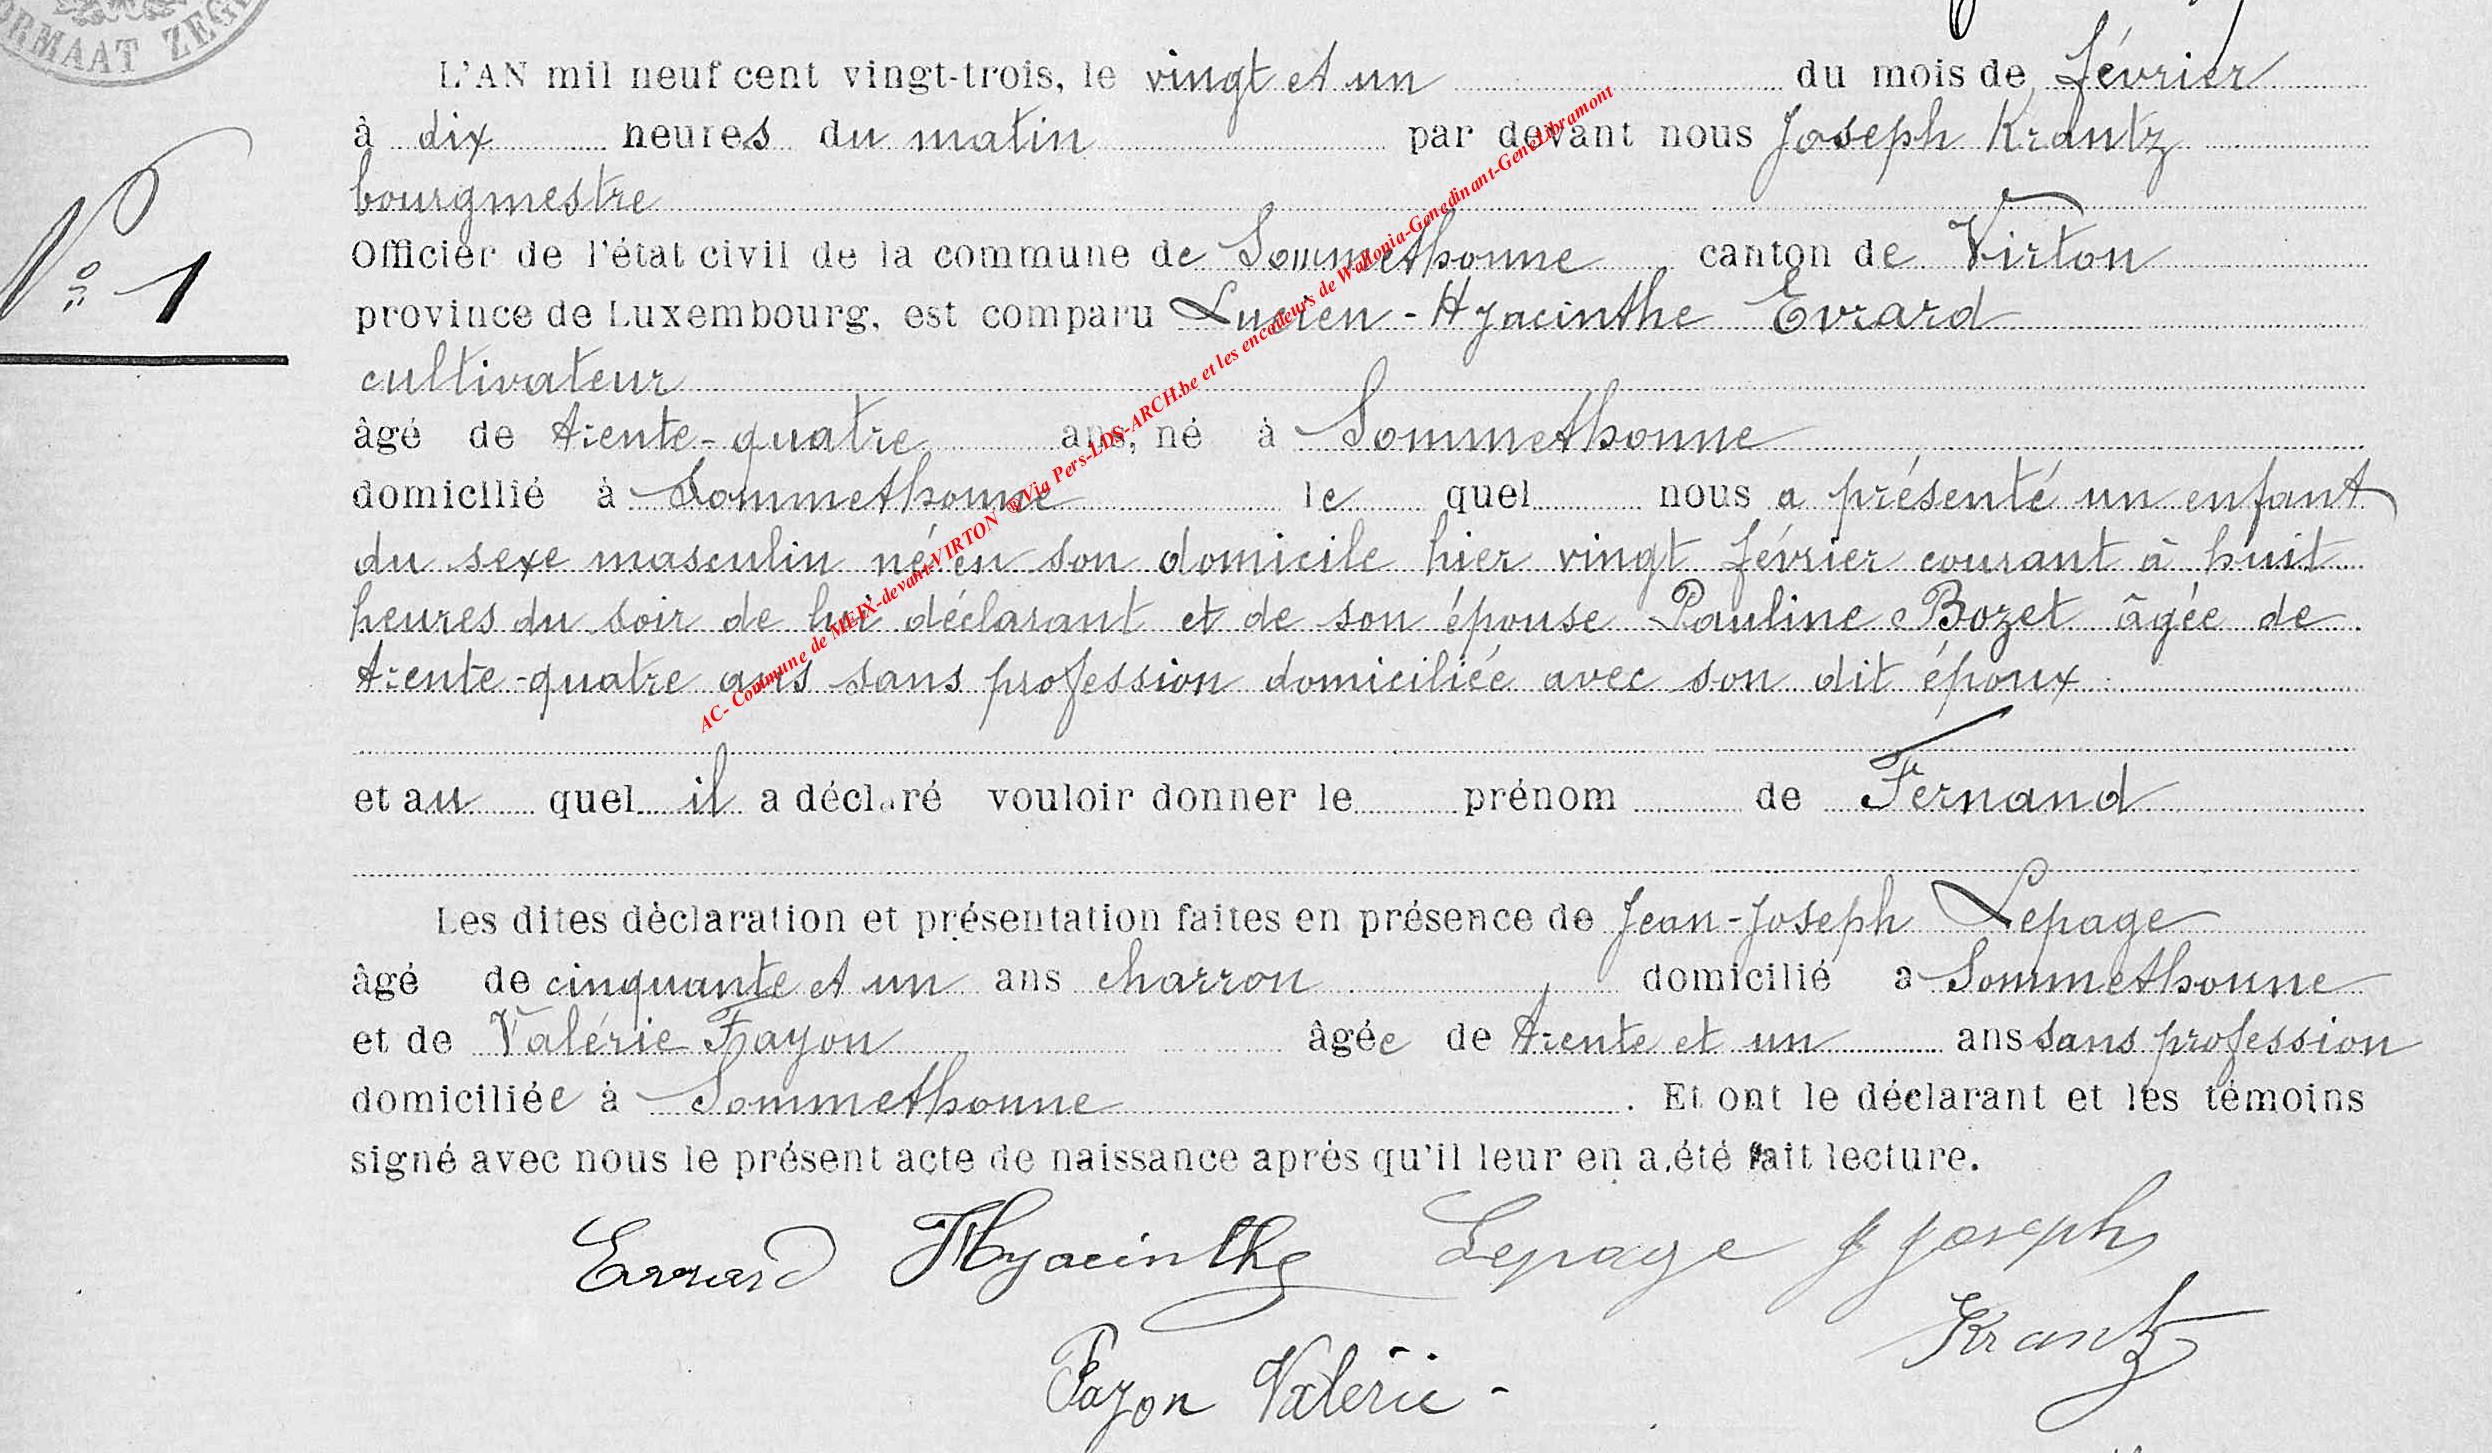 ORMAAT ZEG
L'AN mil neuf cent vingt-trois, le vingt et un du mois de février
à dix heures du matin par devant nous Joseph Krantz
bourgmestre
N° 1
Officier de l'état civil de la commune de Sommethonne canton de Virton
province de Luxembourg, est comparu Lucien-Hyacinthe Evrard
cultivateur
âgé de trente-quatre ans, né à Sommethonne
domicilié à Sommethonne le quel nous a présenté un enfant
du sexe masculin né en son domicile hier vingt février courant à huit
heures du soir de lui déclarant et de son épouse Pauline Bozet âgée de
trente-quatre ans sans profession domiciliée avec son dit époux
et au quel il a déclaré vouloir donner le prénom de Fernand
Les dites déclaration et présentation faites en présence de Jean-Joseph Lepage
âgé de cinquante et un ans charron domicilié a Sommethonne
et de Valérie Fayon âgée de trente et un ans sans profession
domiciliée à Sommethonne. Et ont le déclarant et les témoins
signé avec nous le présent acte de naissance après qu'il leur en a été fait lecture.
Evrard Hyacinthe Lepage J Joseph
Krantz
Fayon Valérie
AC- Commune de MEIX-devant-VIRTON ®Via Pers-LDS-ARCH.be et les encodeurs de Wallonia-Genedinant-GeneLibramont